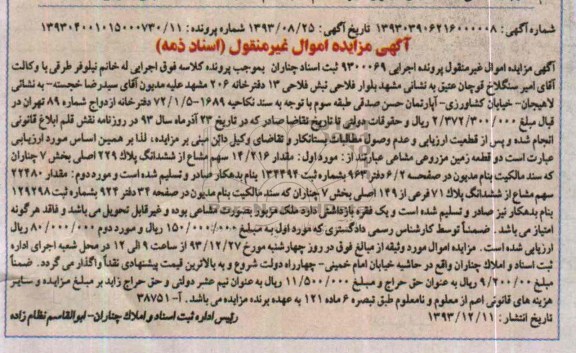 شماره آگهی: ۱۳۹۳۰۳۹۰۶۲۱۶۰۰۰۰۰۸ تاریخ آگهی: ۱۳۹۳/۰۸/۲۵ شماره پرونده: ۱۳۹۳۰۴۰۰۱۰۱۵۰۰۰۷۳۰/۱۱
آگهی مزایده اموال غیرمنقول (اسناد ذمه)
آگهی مزایده اموال غیرمنقول پرونده اجرایی ۹۳۰۰۰۶۹ ثبت اسناد چناران بموجب پرونده کلاسه فوق اجرایی له خانم نیلوفر طرقی با وکالت
آقای امیر سنگلاخ قوچان عتیق به نشانی مشهد بلوار فلاحی نبش فلاحی ۱۳ دفترخانه ۲۰۶ مشهد علیه مدیون آقای سیدرضا خجسته- به نشانی
لاهیجان- خیابان کشاورزی- آپارتمان حسن صدقی طبقه سوم با توجه به سند نکاحیه ۱۶۸۹-۷۲/۱/۵ دفترخانه ازدواج شماره ۸۹ تهران در
قبال مبلغ ۲/۳۷۲/۳۰۰/۰۰۰ ریال و حقوقات دولتی تا تاریخ تقاضا صادر که در تاریخ ۲۳ آذرماه سال ۹۳ در روزنامه نقش قلم ابلاغ قانونی
انجام شده و پس از قطعیت ارزیابی و عدم وصول مطالبات بستانکار و تقاضای وکیل دائن مبنی بر مزایده، لذا بر همین اساس مورد ارزیابی
عبارت است دو قطعه زمین مزروعی مشاعی عبارتند از: مورد اول: مقدار ۱۴/۲۱۶ سهم مشاع از ششدانگ پلاک ۲۲۹ اصلی بخش ۷ چناران
که سند مالکیت بنام مدیون در صفحه ۶/۲ دفتر ۹۶۳ بشماره ثبت ۱۳۴۴۹۴ بنام بدهکار صادر و تسلیم شده است و مورد دوم: مقدار ۲۲۴۸۰
سهم مشاع از ششدانگ پلاک ۷۱ فرعی از ۱۴۹ اصلی بخش ۷ چناران که سند مالکیت بنام مدیون در صفحه ۳۴ دفتر ۹۲۴ بشماره ثبت ۱۲۹۲۹۸
بنام بدهکار نیز صادر و تسلیم شده است و یک فقره بازداشتی دارد ملک مزبور بصورت مشاعی بوده و غیرقابل تحویل می باشد و فاقد هرگونه
امتیاز می باشد. ضمناً توسط کارشناس رسمی دادگستری که مورد اول به مبلغ ۱۵۰/۰۰۰/۰۰۰ ریال و مورد دوم ۸۰/۰۰۰/۰۰۰ ریال
ارزیابی شده است. مزایده اموال مورد وثیقه از مبالغ فوق در روز چهارشنبه مورخ ۹۳/۱۲/۲۷ از ساعت ۹ الی ۱۲ در محل شعبه اجرای اداره
ثبت اسناد و املاک چناران واقع در حاشیه خیابان امام خمینی- چهارراه دولت شروع و به بالاترین قیمت پیشنهادی نقداً واگذار می گردد. ضمناً
مبلغ ۹/۲۰۰/۰۰۰ ریال به عنوان حق حراج و مبلغ ۱۱/۵۰۰/۰۰۰ ریال به عنوان نیم عشر دولتی و حق حراج زاید بر مبلغ مزایده و سایر
هزینه های قانونی اعم از معلوم و نامعلوم طبق تبصره ۶ ماده ۱۲۱ به عهده برنده مزایده می باشد. آ- ۳۸۷۵۱
تاریخ انتشار: ۱۳۹۳/۱۲/۱۱ رئیس اداره ثبت اسناد و املاک چناران- ابوالقاسم نظام زاده